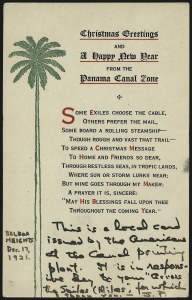 Christmas Greetings
AND
A Happy New Year
FROM THE
Panama Canal Zone
SOME EXILES CHOOSE THE CABLE,
OTHERS PREFER THE MAIL,
SOME BOARD A ROLLING STEAMSHIP—
THOUGH ROUGH AND VAST THAT TRAIL—
TO SPEED A CHRISTMAS MESSAGE
TO HOME AND FRIENDS SO DEAR,
THROUGH RESTLESS SEAS, IN TROPIC LANDS,
WHERE SUN OR STORM LURKS NEAR;
BUT MINE GOES THROUGH MY MAKER:
A PRAYER IT IS, SINCERE:
"MAY HIS BLESSINGS FALL UPON THEE
THROUGHOUT THE COMING YEAR."
BALBOA
HEIGHTS
Dec. 17,
1921.
This is a local card
issued by the Americans
at the Canal printing
plant. It is a
to your
the for which
THANK YOU!